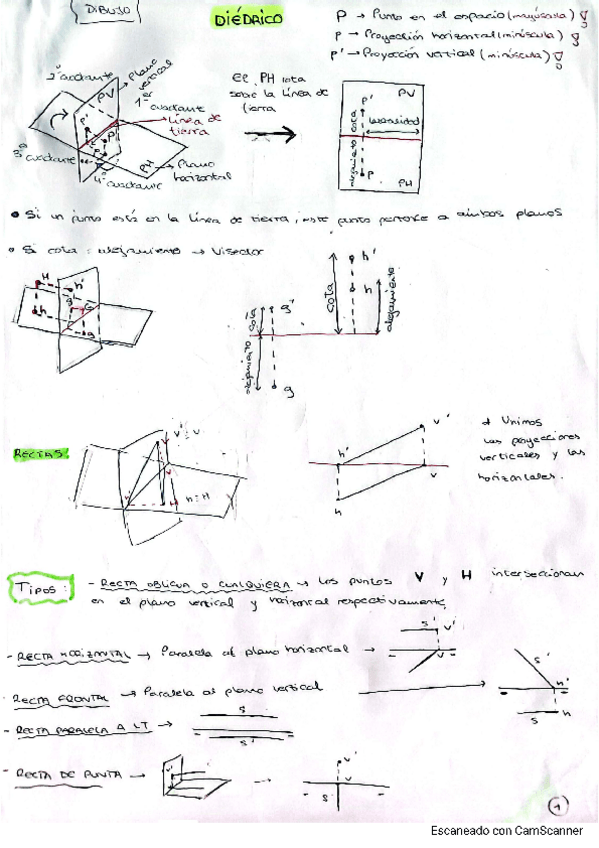 DIBUJO
DIÉDRICO
P → Punto en el espacio (mayúscula)
p → Proyección horizontal (minúscula)
p' → Proyección vertical (minúscula)
2º cuadrante
Plano vertical
PV
1er cuadrante
Línea de tierra
3º cuadrante
4º cuadrante
PH
Plano horizontal
El PH rota
sobre la línea de
tierra
PV
p'
cota
alejamiento
p
PH
• Si un punto está en la línea de tierra, este punto pertenece a ambos planos
• Si cota = alejamiento →
H
h'
h
g'
G
g
cota
alejamiento
g'
g
cota
h'
h
alejamiento
RECTAS:
V'≡V
h≡H
h'
h
v'
v
Unimos
las proyecciones
verticales y las
horizontales.
Tipos:
- RECTA OBLICUA O CUALQUIERA → Los puntos V y H interseccionan
en el plano vertical y horizontal respectivamente
- RECTA HORIZONTAL → Paralela al plano horizontal →
s'
v'
v
RECTA FRONTAL → Paralela al plano vertical
s'
h'
s
h
- RECTA PARALELA A LT →
s
s'
- RECTA DE PUNTA →
v'
v'
v
s
1
Escaneado con CamScanner